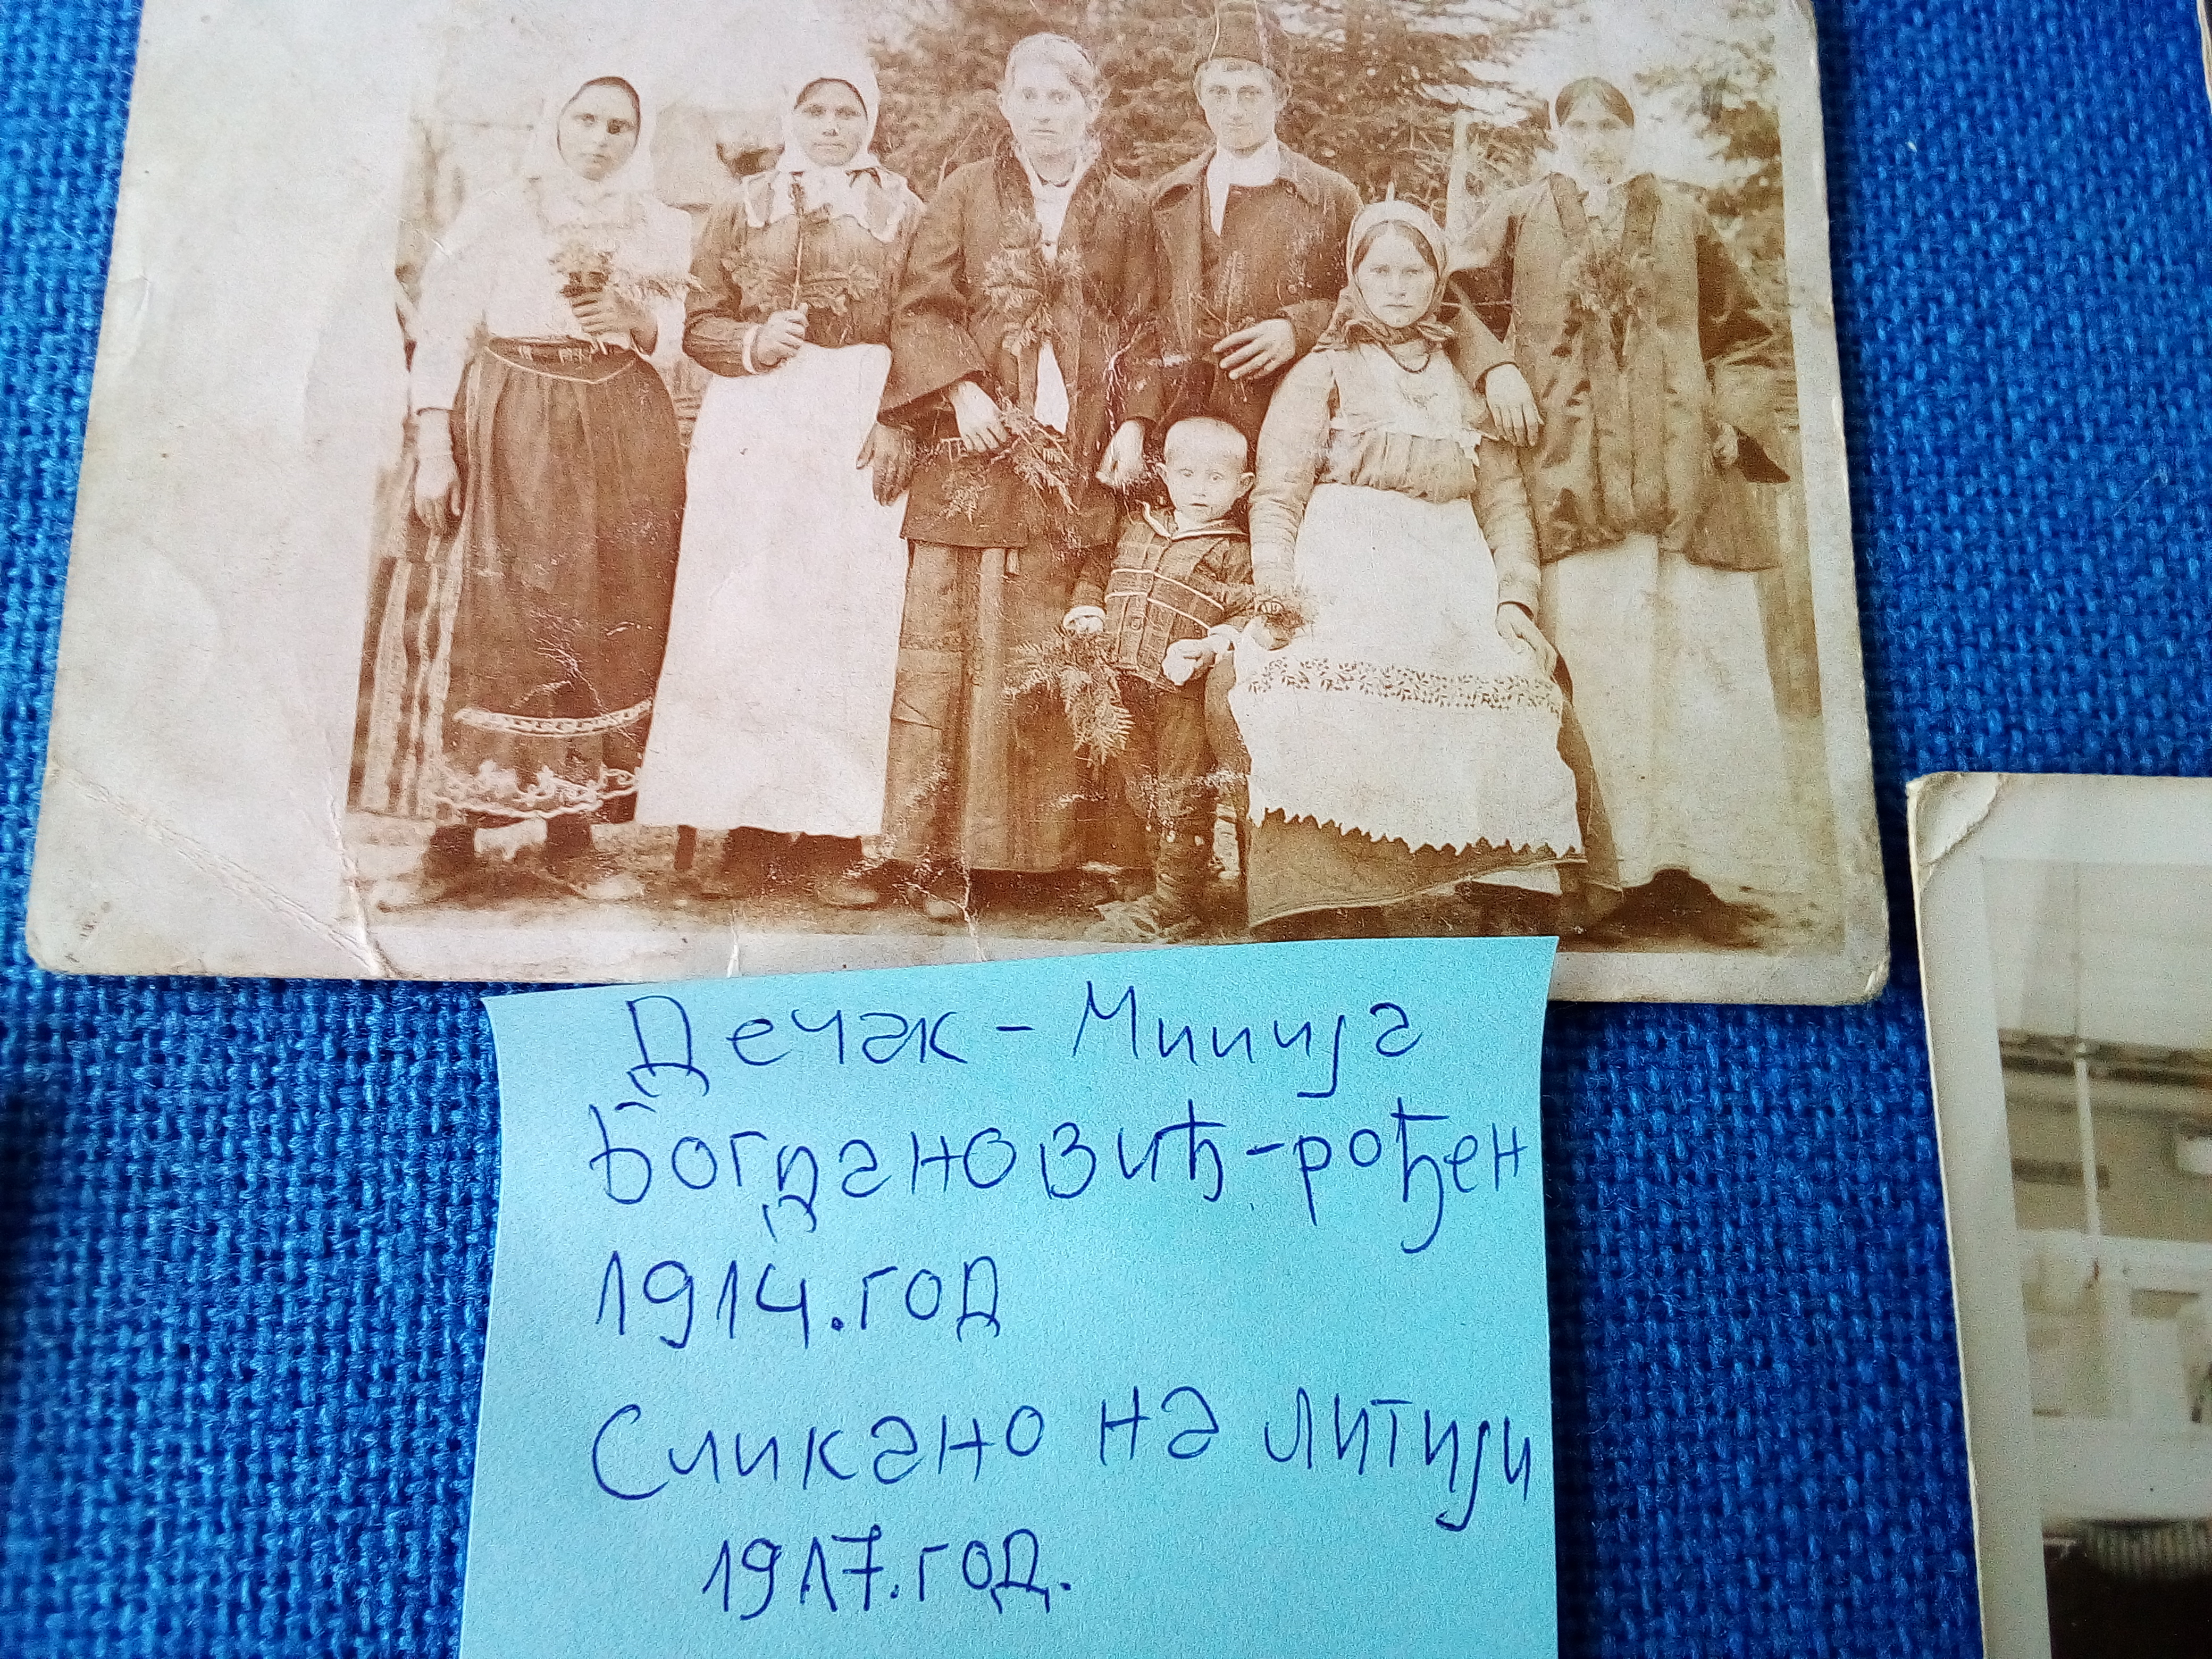 Дечак - Милија
Богдановић - рођен
1914. год
Сликано на литији
1917. год.